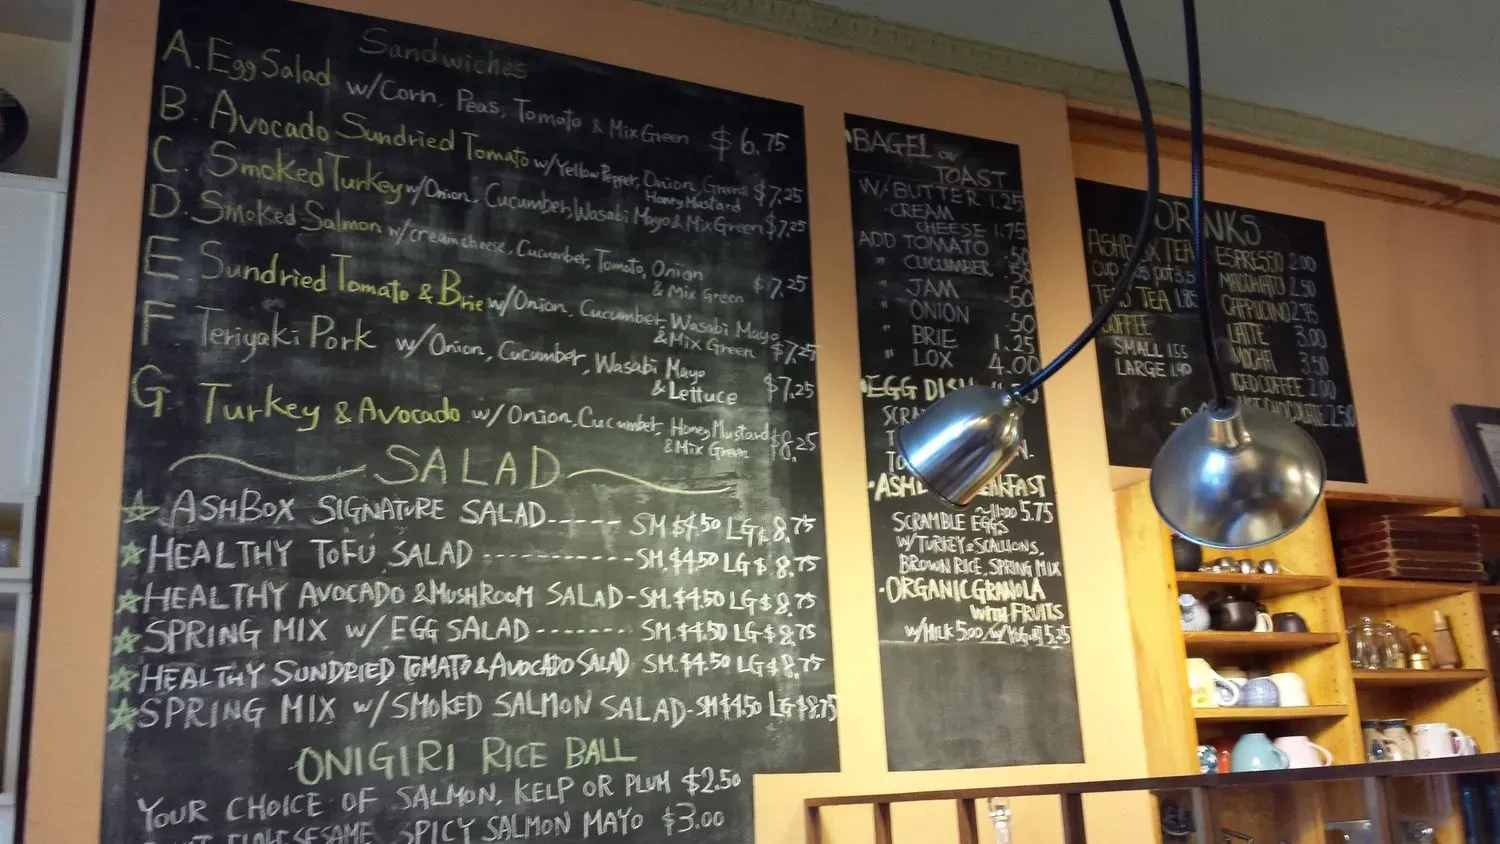 Sandwiches
A. Egg Salad w/Corn, Peas, Tomato & Mix Green $6.75
B. Avocado Sundried Tomato w/Yellow Pepper, Onion, Greens
Honey Mustard $7.25
C. Smoked Turkey w/Onion, Cucumber, Wasabi Mayo & Mix Green $7.25
D. Smoked Salmon w/creamcheese, Cucumber, Tomato, Onion
& Mix Green $7.25
E Sundried Tomato & Brie w/Onion, Cucumber, Wasabi Mayo
& Mix Green $7.25
F Teriyaki Pork w/Onion, Cucumber, Wasabi Mayo
& Lettuce $7.25
G. Turkey & Avocado w/Onion, Cucumber, Honey Mustard
& Mix Green $8.25
SALAD
ASHBOX SIGNATURE SALAD----- SM $4.50 LG $8.75
HEALTHY TOFU SALAD ----------- SM.$4.50 LG $8.75
HEALTHY AVOCADO & MUSHROOM SALAD-SM.$4.50 LG $8.75
SPRING MIX w/ EGG SALAD-------- SM.$4.50 LG $8.75
HEALTHY SUNDRIED TOMATO & AVOCADO SALAD SM.$4.50 LG $8.75
SPRING MIX w/SMOKED SALMON SALAD-SM$4.50 LG $8.75
ONIGIRI RICE BALL
YOUR CHOICE OF SALMON, KELP OR PLUM $2.50
SESAME SPICY SALMON MAYO $3.00
BAGEL or
TOAST
W/ BUTTER 1.25
CREAM
CHEESE 1.75
ADD TOMATO .50
" CUCUMBER .50
" JAM .50
" ONION .50
" BRIE 1.25
" LOX 4.00
EGG
~11:00 5.75
SCRAMBLE EGGS
W/TURKEY & SCALLIONS,
BROWN RICE, SPRING MIX
ORGANIC GRANOLA
WITH FRUITS
w/MILK 5.00 w/YOGURT 5.25
DRINKS
ASHBOX TEA
CUP
TEAS TEA 1.85
COFFEE
SMALL
LARGE 1.90
ESPRESSO 2.00
MACCHIATO 2.50
CAPPUCINO 2.95
LATTE 3.00
MOCHA 3.50
ICED COFFEE 2.00
HOT CHOCOLATE 2.50